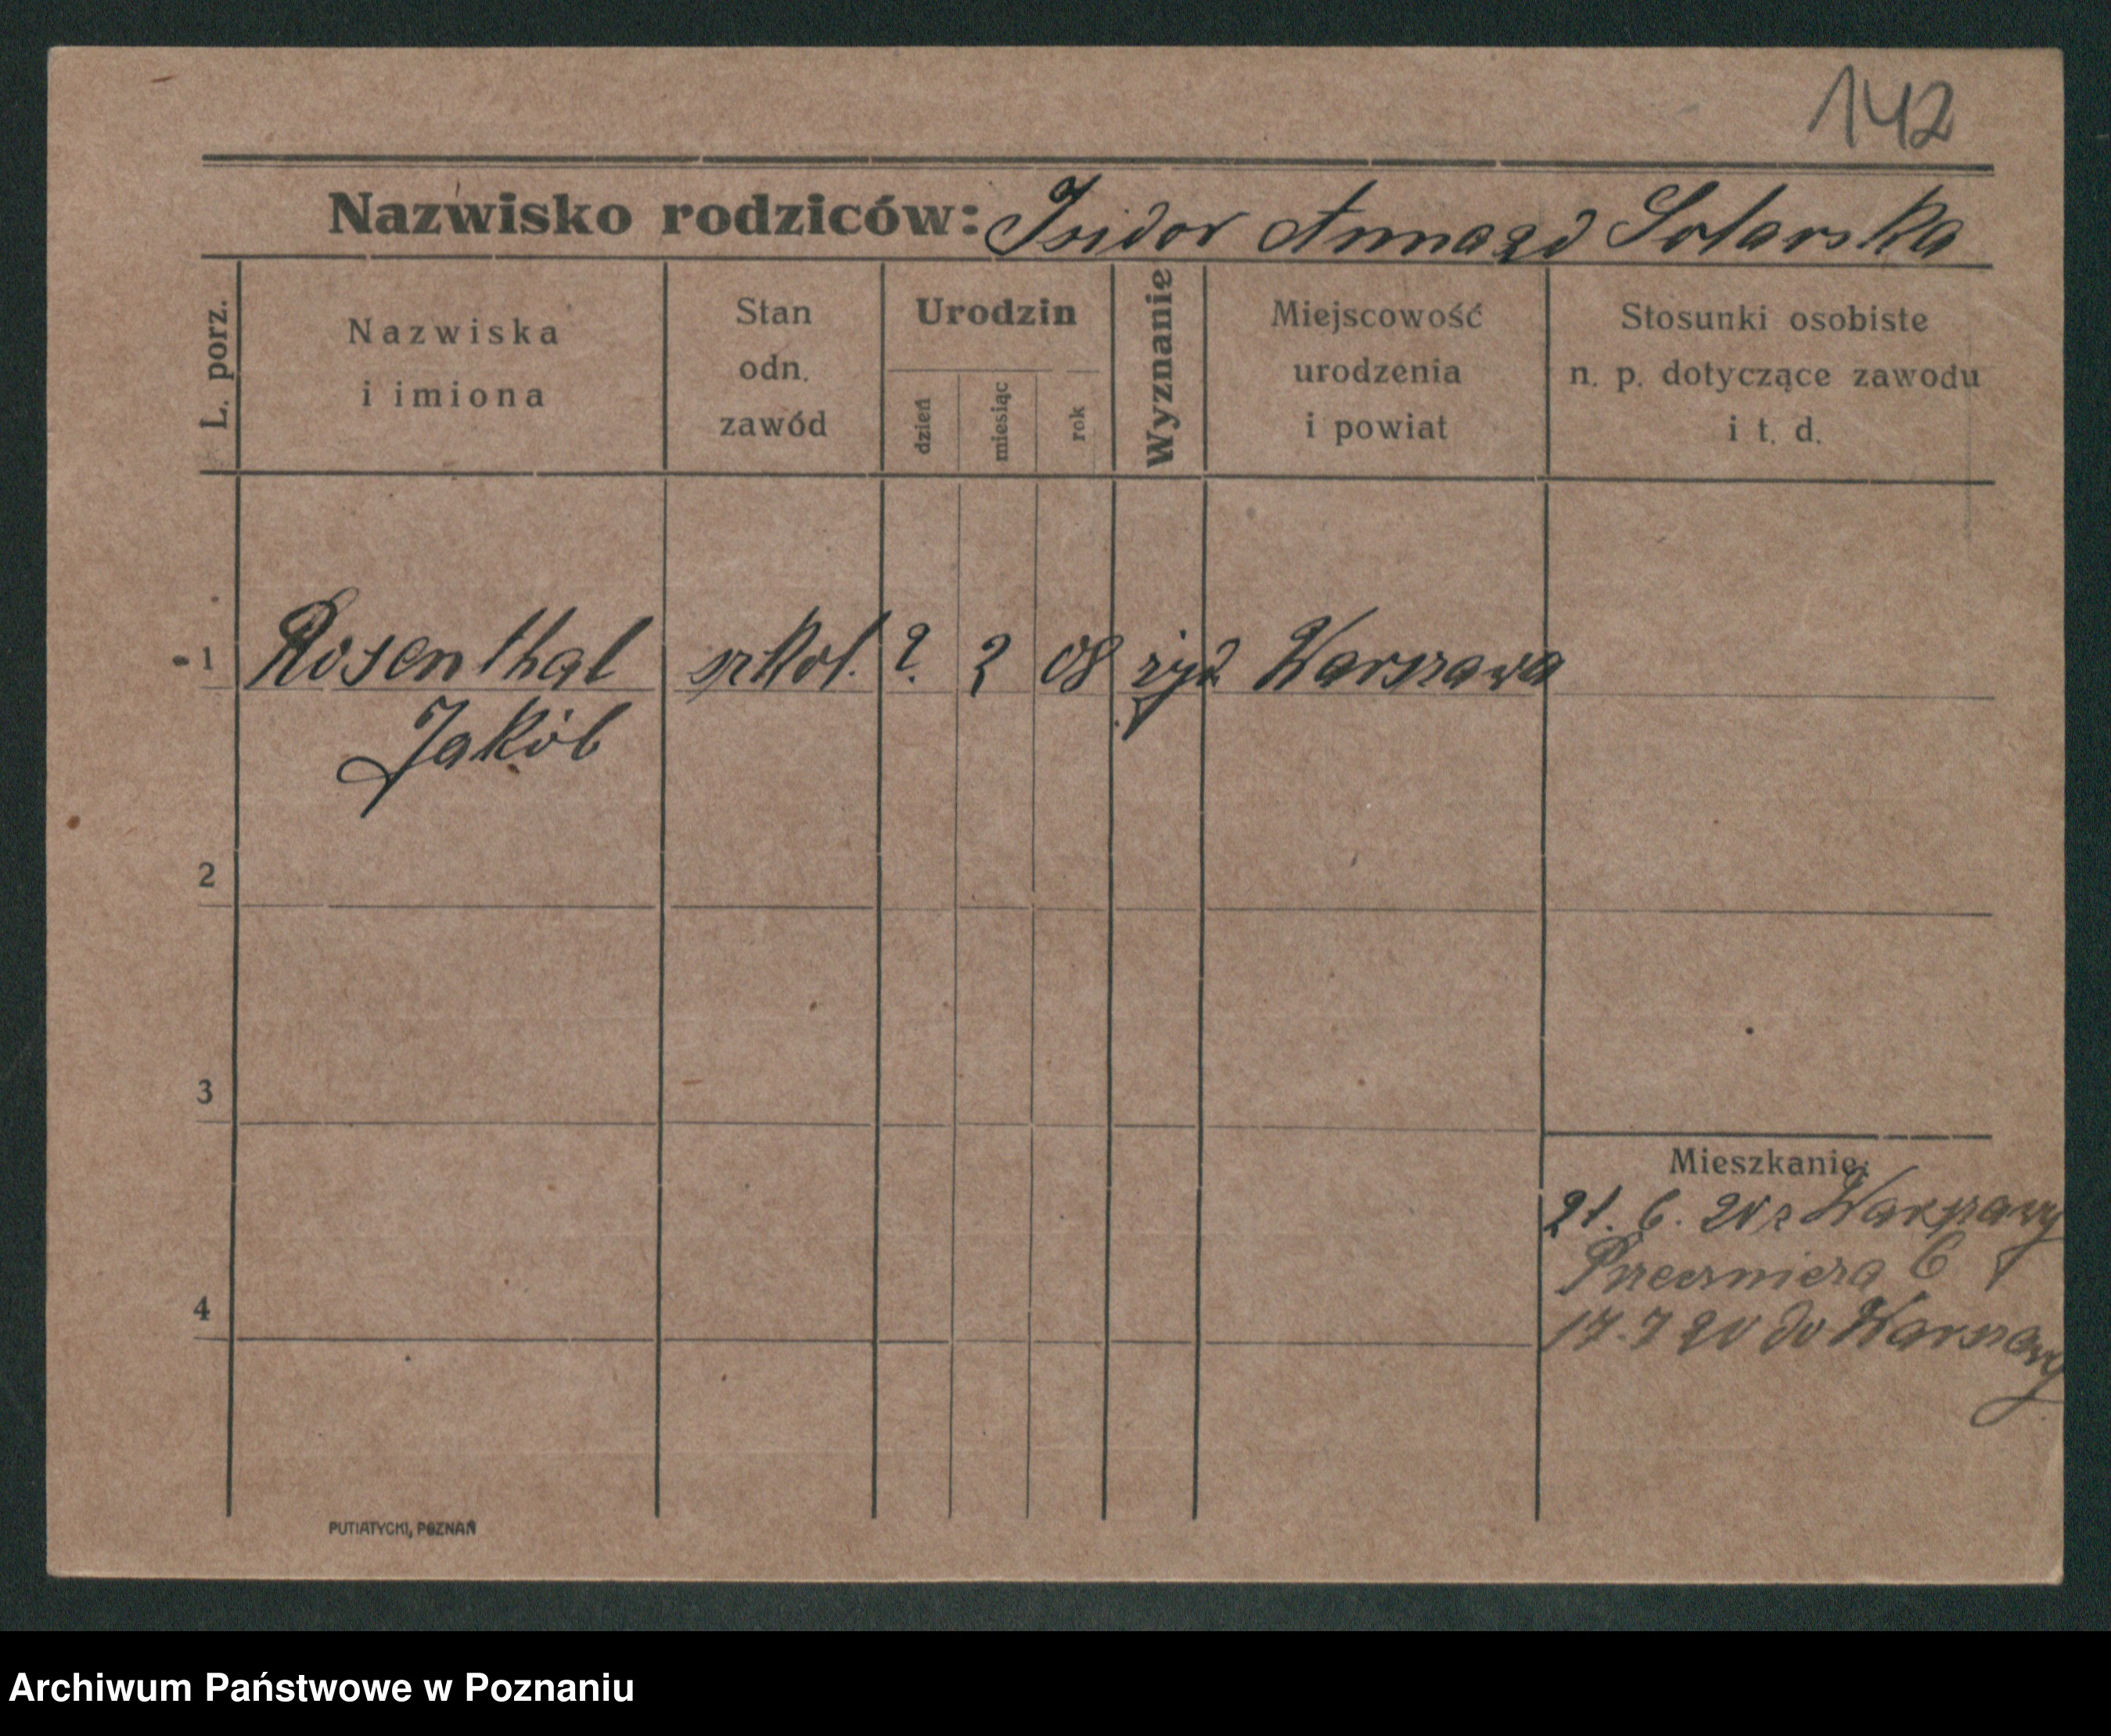 142
Nazwisko rodziców: Isidor Anna zd Solarska
L. porz.
Nazwiska
i imiona
Stan
odn.
zawód
Urodzin
dzień
miesiąc
rok
Wyznanie
Miejscowość
urodzenia
i powiat
Stosunki osobiste
n. p. dotyczące zawodu
i t. d.
1 Rosenthal szkol. ? 2 08 żyd Warszawa
Jakób
2
3
4
Mieszkanie:
21. 6. 20 z Warszawy
6
17. 7 20 do Warszawy
PUTIATYCKI, POZNAŃ
Archiwum Państwowe w Poznaniu